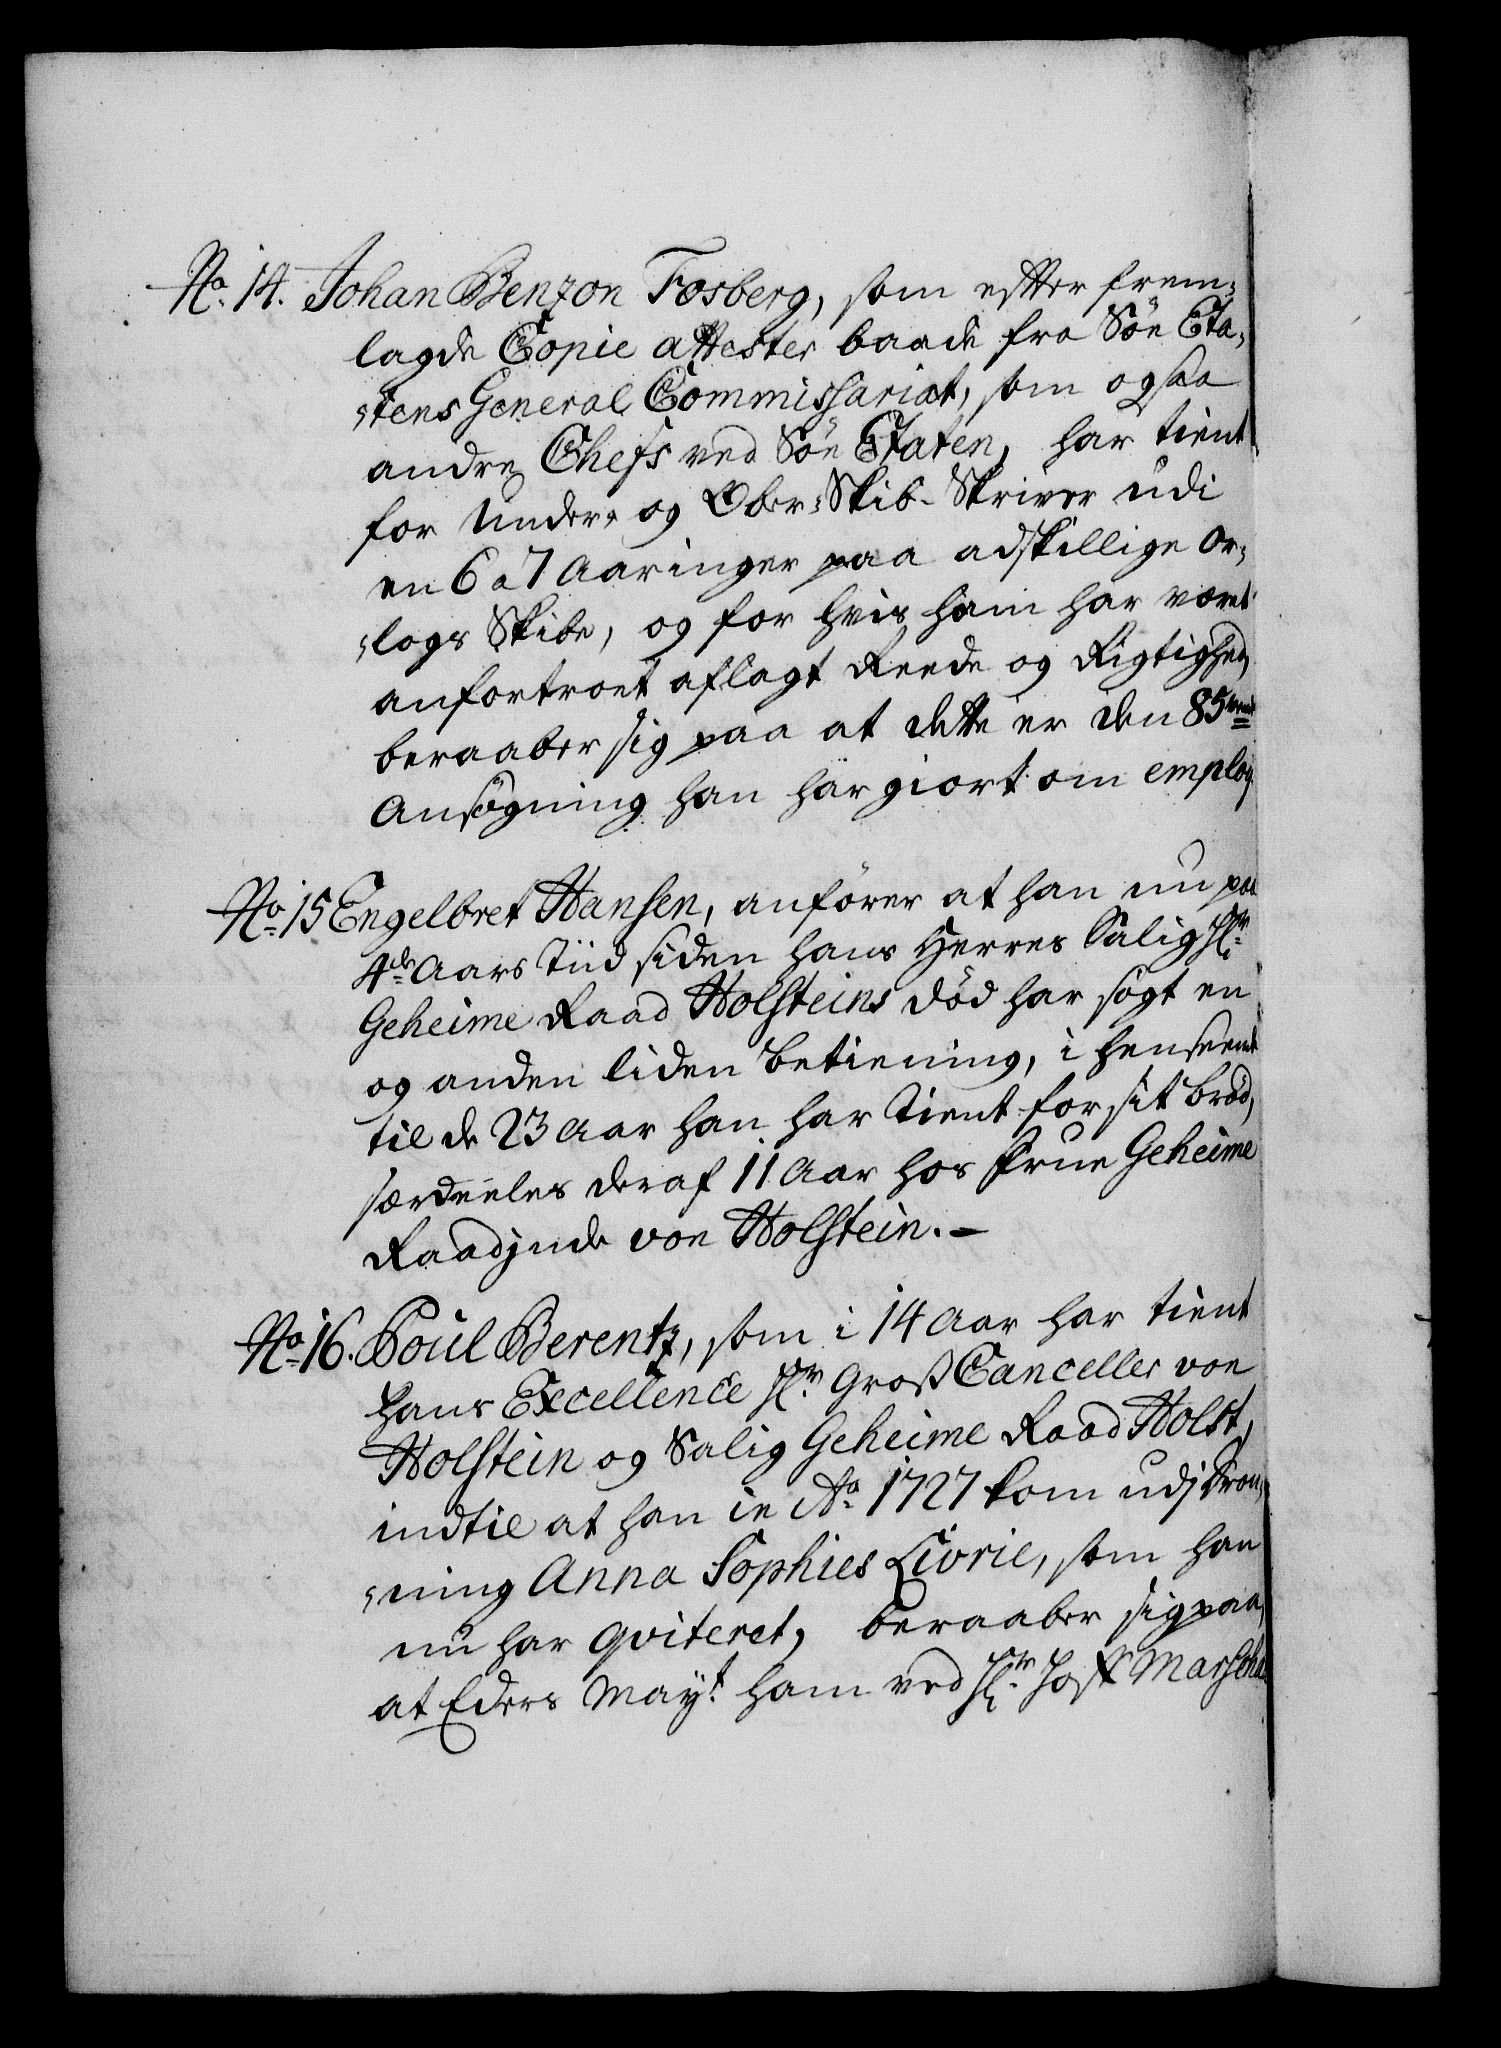 No. 14. Johan Benzon Fosberg, som efter frem,
lagde Copie attester baade fra Söe Eta,
,tens General Commissariat, som ogsaa
andre Chefs ved Söe Etaten, har tient
for Under- og Ober-Skib-Skriver udi
en 6 a 7 Aaringer paa adskillige Or,
,logs Skibe, og for hvis ham har været
anfortroet aflagt Reede og Rigtighed,
beraaber sig paa at dette er den 85
Ansøgning han har giort om employ
No. 15 Engelbret Hansen, anfører at han nu paa
4de Aars Tiid siden hans Herres Salig Hr.
Geheime Raad Holsteins död har søgt en
og anden liden betiening, i henseende
til de 23 Aar han har tient for sit bröd,
særdeeles deraf 11 Aar hos Frue Geheime
Raadinde von Holstein.-
No. 16. Poul Berentz, som i 14 Aar har tient
hans Excellence Hr. Groß Canceller von
Holstein og Salig Geheime Raad Holst,
indtil at han in Ao. 1727 kom udj Dron,
,ning Anna Sophies Livrie, som han
nu har qviteret, beraaber sig paa,
at Eders Mayt. ham ved Hr. Hoff Marscha